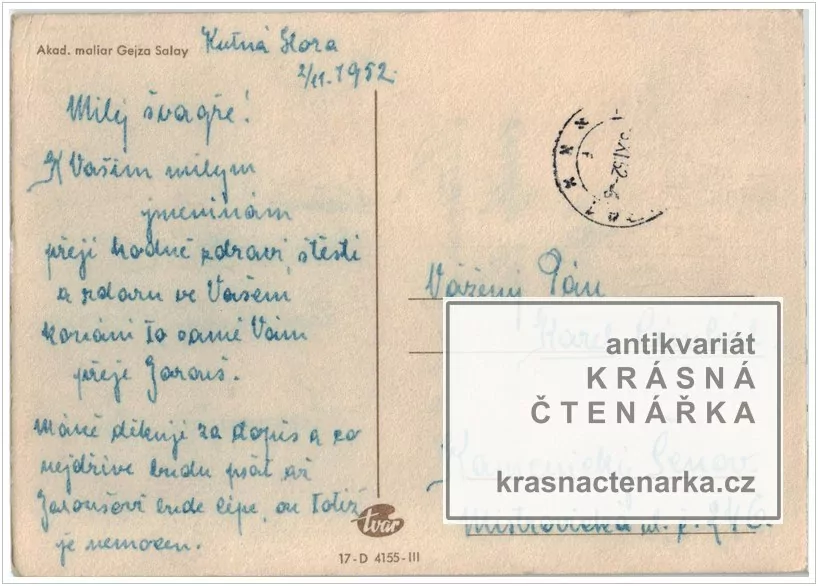 Akad. maliar Gejza Salay
Kutná Hora
2/11. 1952.
Milý švagře!
K Vašim milym
jmeninám
přeji hodně zdraví štěsti
a zdaru ve Vašem
konáni to samé Vám
přeje Jarouš.
Máně děkuji za dopis a co
nejdřive budu psát až
Jaroušovi bude lépe, on totiž
je nemocen.
tvar
17-D 4155-III
XI 52
Vážený Pán
Karel
Kamenický Šenov
Mistrovická
antikvariát
KRÁSNÁ
ČTENÁŘKA
krasnactenarka.cz